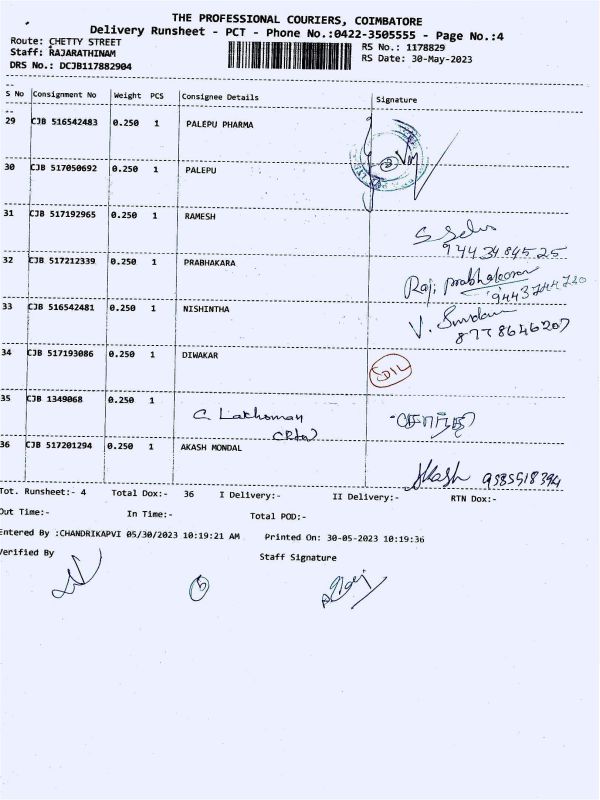 THE PROFESSIONAL COURIERS, COIMBATORE
Delivery Runsheet - PCT - Phone No.:0422-3505555 - Page No.:4
Route: CHETTY STREET
RS No.: 1178829
Staff: RAJARATHINAM
RS Date: 30-May-2023
DRS No.: DCJB117882904
S No Consignment No Weight PCS Consignee Details Signature
29 CJB 516542483 0.250 1 PALEPU PHARMA
30 CJB 517050692 0.250 1 PALEPU
31 CJB 517192965 0.250 1 RAMESH
S Selva
9443484525
32 CJB 517212339 0.250 1 PRABHAKARA
Raji prabhakaran
9443744720
33 CJB 516542481 0.250 1 NISHINTHA
V.
8778646207
34 CJB 517193086 0.250 1 DIWAKAR
SDIL
35 CJB 1349068 0.250 1
C. Lakhsman
36 CJB 517201294 0.250 1 AKASH MONDAL
Akash 9385518394
Tot. Runsheet:- 4 Total Dox:- 36 I Delivery:- II Delivery:- RTN Dox:-
Out Time:- In Time:- Total POD:-
Entered By :CHANDRIKAPVI 05/30/2023 10:19:21 AM Printed On: 30-05-2023 10:19:36
Verified By Staff Signature